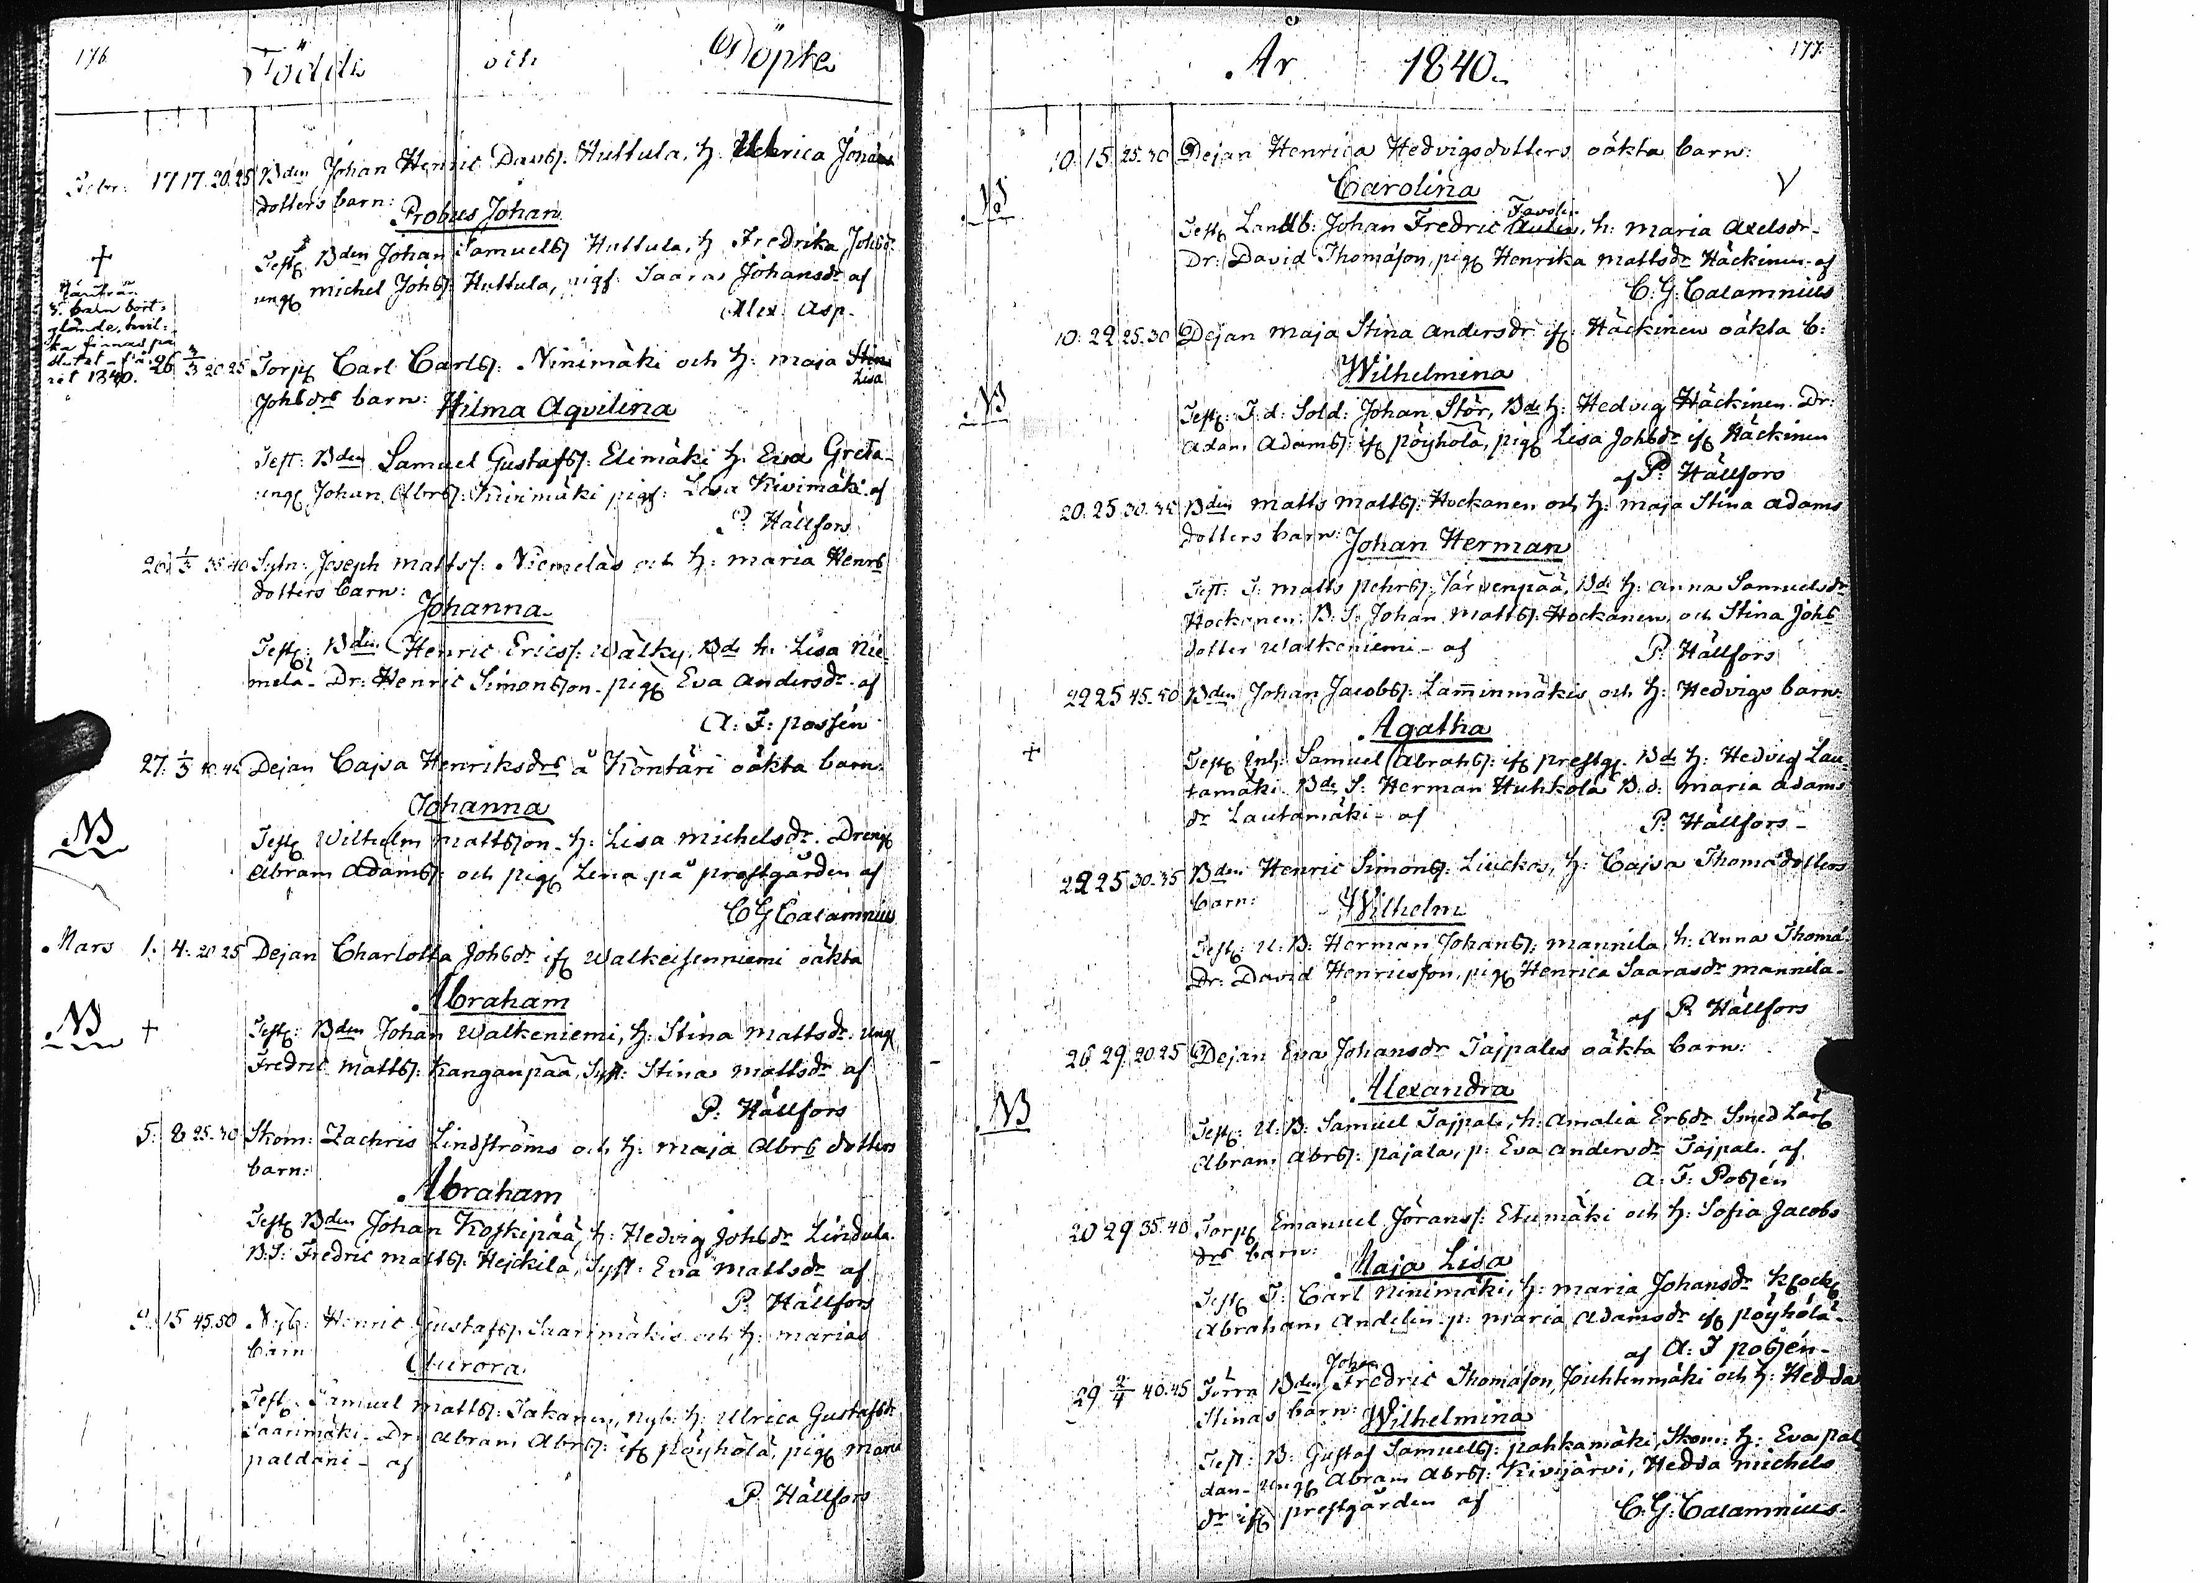 176
Födde och Döpte
Febr: 17 17. 20.25 Bden Johan Henric Davs. Huttula, h: Ulrica Jonas
dotters barn: Probus Johan
Test. Bden Johan Samuels Huttula, h Fredrika Johsdr
ung michel Johs: Huttula, pig: Saara Johansdr af
Alex: Asp.
+
5. barn bort=
glömde, hvil=
ka finnas på
slutet
1840.
26 3/3 20.25 Torp Carl Carls: Ninimäki och h: maja Stina
Lisa
Johsdrs barn: Hilma Aqvilina
Test: Bden Samuel Gustafs: Elimäki h: Eva Greta
ung Johan Abrs: Kinimäki pig: Lisa Kivimäki af
P. Hällfors
26 1/3 35.40 Sytn: Joseph matts: Niemeläs och h: maria Henrs
dotters barn: Johanna
Test: Bden Henric Erics: Wälky, Bde h: Lisa Nie=
melä- Dr: Henric Simonson- pig Eva Andersdr. af
A: F: possén
27. 1/3 40.45 Dejan Cajsa Henriksdrs å Köntäri oäkta barn.
Johanna
NB
Test Wilhelm mattson- h: Lisa michelsdr. Dreng
Abram Adams: och pig Lena på prostgården af
C G Calamnius
Mars 1. 4. 20 25 Dejan Charlotta Johsdr if Walkeisenniemi oäkta
Abraham
NB +
Test: Bden Johan Walkeniemi, h: Stina mattsdr. Ung
Fredric matts: Kanganpää, Syst: Stina mattsdr af
P: Hällfors
5. 8 25.30 Skom: Zachris Lindströms och h: maja Abrs dotters
barn:
Abraham
Test Bden Johan Koskipää, h: Hedvig Johsdr Lindula.
B.S: Fredric matts: Hejckilä, Syst: Eva mattsdr af
P. Hällfors
9. 15 45.50 Nyb: Henric Gustafs. Saarimäkis och h: marias
barn
Aurora
Test. Samuel matts: Takanen, nyb: h: Ulrica Gustafsdr
Saarimäki- Dr: Abram Abrs: if pöyhölä, pig Maria
paldani- af
P. Hällfors
År 1840.
177.
10. 15. 25.30 Dejan Henrica Hedvigsdotters oäkta barn:
Carolina V
NB
Favolin
Test. Landb: Johan Fredric, h: maria Axelsdr-
Dr: David Thomason, pig Henrika mattsdr Häckinen- af
C: G: Calamnius
10. 22 25.30 Dejan maja Stina Andersdr if Häckinen oäkta b:
Wilhelmina
NB
Test: F. d: Sold: Johan Stör, Bde h: Hedvig Häckinen. Dr:
Adam Adams: if pöyholä, pig Lisa Johsdr if Häckinen
af P. Hällfors
20. 25 30.35 Bden matts matts: Hockanen och h: maja Stina Adams
dotters barn: Johan Herman
Test: T: matts pehrs: Järvenpää, Bde h: Anna Samuelsdr
Hockanen. B: S: Johan matts: Hockanen, och Stina Johs
dotter Walkeniemi- af P. Hällfors
22 25 45.50 Bden Johan Jacobs: Lamminmäkis och h: Hedvigs barn:
Agatha
+
Test Inh: Samuel Abrahs: if prestg. Bde h: Hedvig Lau=
tamäki. Bde S: Herman Huhkola B. d: maria Adams
dr Lautamäki- af P. Hällfors-
22 25 30.35 Bden Henric Simons: Liuckos, h: Cajsa Thomadotters
barn: Wilhelm
Test: U: B: Herman Johans: mannila, h: Anna Thoma
Dr. David Henricsson, pig Henrica Saarasdr mannila-
af P. Hällfors
26 29. 20.25 Dejan Eva Johansdr Tajpales oäkta barn:
Alexandra
NB
Test: U: B: Samuel Tajpale, h: Amalia Ersdr Smed Lärl
Abram Abrs: pajala, p: Eva Andersdr Tajpale. af
A: F: Possén
20 29 35.40 Torp Emanuel Jörans: Etumäki och h: Sofia Jacobs
drs barn: Maja Lisa
Test T: Carl Ninimäki, h: maria Johansdr Klock
Abraham Andelin- p: maria Adamsdr if pöyhölä-
af A: F possén-
29 2/4 40.45 Förra Bden Johan Fredric Thomason, Joichtenmäki och h: Hedda
Stinas barn: Wilhelmina
Test: B: Gustaf Samuels: pahkamäki, Skom: h: Eva pal
dan- ung Abram Abrs: Kivijärvi, Hedda michels
dr if prestgården af C: G: Calamnius